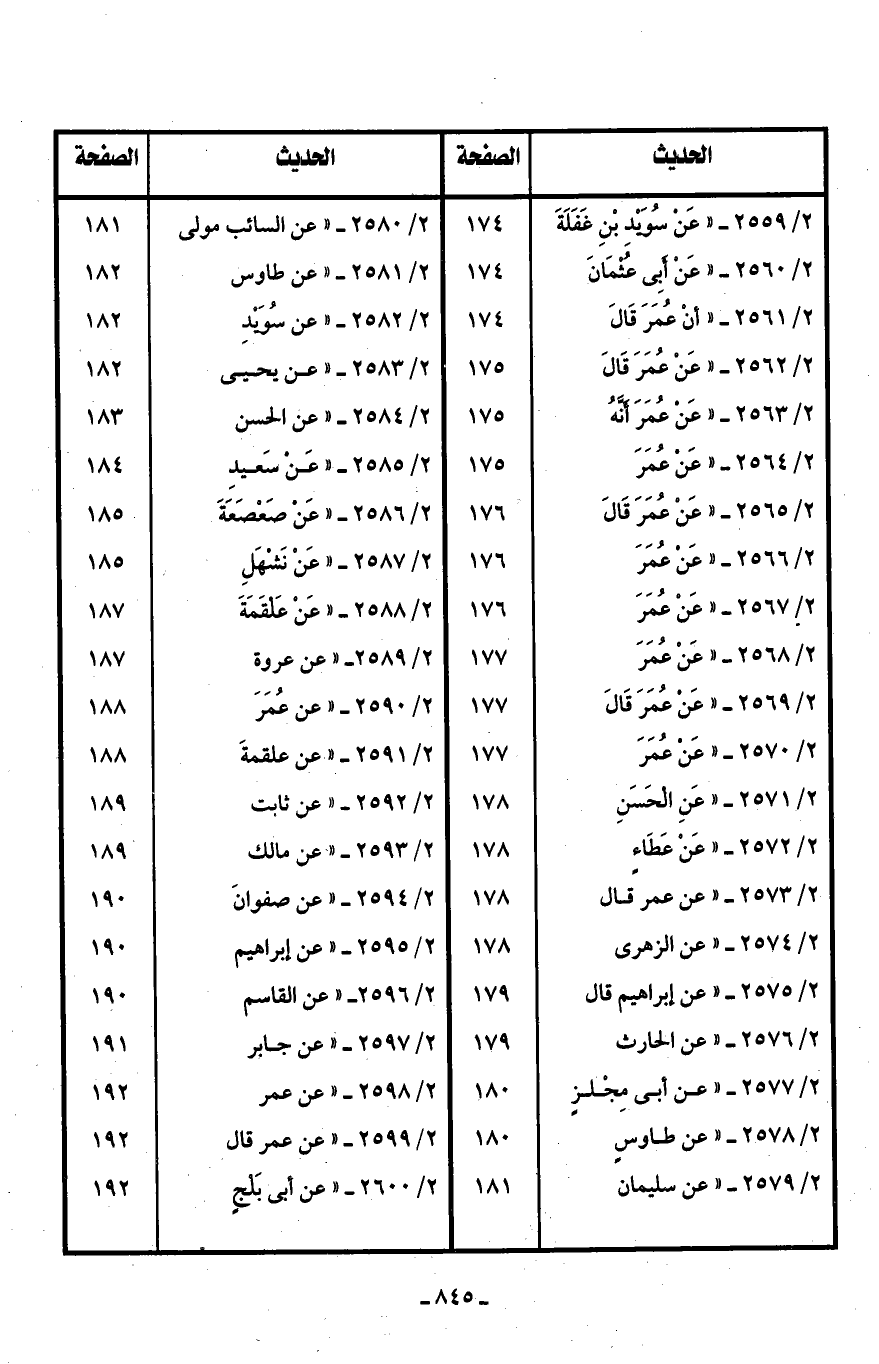 الحديث الصفحة الحديث الصفحة
٢/ ٢٥٥٩ ـ « عَنْ سُوَيْدِ بْنِ غَفَلَةَ ١٧٤ ٢/ ٢٥٨٠ ـ « عن السائب مولى ١٨١
٢/ ٢٥٦٠ ـ « عَنْ أَبِى عُثْمَانَ ١٧٤ ٢/ ٢٥٨١ ـ « عن طاوس ١٨٢
٢/ ٢٥٦١ ـ « أنْ عُمَرَ قَالَ ١٧٤ ٢/ ٢٥٨٢ ـ « عن سُوَيْدِ ١٨٢
٢/ ٢٥٦٢ ـ « عَنْ عُمَرَ قَالَ ١٧٥ ٢/ ٢٥٨٣ ـ « عـن يحـيـى ١٨٢
٢/ ٢٥٦٣ ـ « عَنْ عُمَرَ أَنَّهُ ١٧٥ ٢/ ٢٥٨٤ ـ « عن الحسن ١٨٣
٢/ ٢٥٦٤ ـ « عَنْ عُمَرَ ١٧٥ ٢/ ٢٥٨٥ ـ « عَـنْ سَعـيدِ ١٨٤
٢/ ٢٥٦٥ ـ « عَنْ عُمَرَ قَالَ ١٧٦ ٢/ ٢٥٨٦ ـ « عَنْ صَعْصَعَةَ ١٨٥
٢/ ٢٥٦٦ ـ « عَنْ عُمَرَ ١٧٦ ٢/ ٢٥٨٧ ـ « عَنْ نَشْهَلِ ١٨٥
٢/ ٢٥٦٧ ـ « عَنْ عُمَرَ ١٧٦ ٢/ ٢٥٨٨ ـ « عَنْ عَلْقَمَةَ ١٨٧
٢/ ٢٥٦٨ ـ « عَنْ عُمَرَ ١٧٧ ٢/ ٢٥٨٩ـ « عن عروة ١٨٧
٢/ ٢٥٦٩ ـ « عَنْ عُمَرَ قَالَ ١٧٧ ٢/ ٢٥٩٠ ـ « عن عُمَرَ ١٨٨
٢/ ٢٥٧٠ ـ « عَنْ عُمَرَ ١٧٧ ٢/ ٢٥٩١ ـ « عن علقمةَ ١٨٨
٢/ ٢٥٧١ ـ « عَنِ الْحَسَنِ ١٧٨ ٢/ ٢٥٩٢ ـ « عن ثابت ١٨٩
٢/ ٢٥٧٢ ـ « عَنْ عَطَاءٍ ١٧٨ ٢/ ٢٥٩٣ ـ « عن مالك ١٨٩
٢/ ٢٥٧٣ ـ « عن عمر قـال ١٧٨ ٢/ ٢٥٩٤ ـ « عن صفوانَ ١٩٠
٢/ ٢٥٧٤ ـ « عن الزهرى ١٧٨ ٢/ ٢٥٩٥ ـ « عن إبراهيم ١٩٠
٢/ ٢٥٧٥ ـ « عن إبراهيم قال ١٧٩ ٢/ ٢٥٩٦ـ « عن القاسم ١٩٠
٢/ ٢٥٧٦ ـ « عن الحارث ١٧٩ ٢/ ٢٥٩٧ ـ « عن جـابر ١٩١
٢/ ٢٥٧٧ ـ « عـن أبـى مِجْـلـزٍ ١٨٠ ٢/ ٢٥٩٨ ـ « عن عمر ١٩٢
٢/ ٢٥٧٨ ـ « عن طـاوسٍ ١٨٠ ٢/ ٢٥٩٩ ـ « عن عمر قال ١٩٢
٢/ ٢٥٧٩ ـ « عن سليمان ١٨١ ٢/ ٢٦٠٠ ـ « عن أبى بَلْجٍ ١٩٢
ـ ٨٤٥ ـ